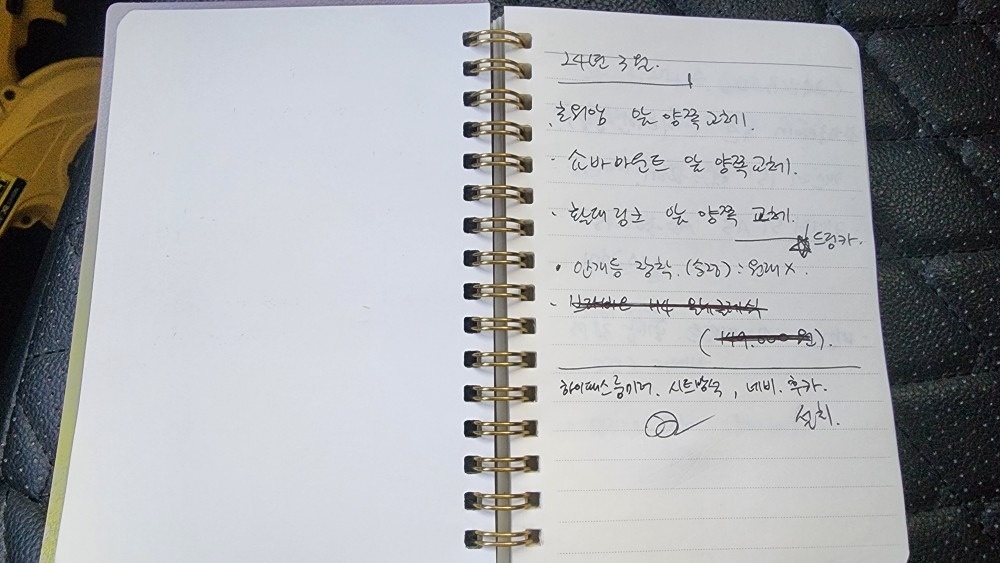 24년 3월.
· 로워암 앞 양쪽 교체.
· 쇼바마운트 앞 양쪽 교체.
· 활대링크 앞 양쪽 교체.
☆ 드림카.
· 안개등 장착. (순정) : 원래 X.
H4
(149.000원).
하이패스룸미러. 시트방석, 네비. 후카.
설치.